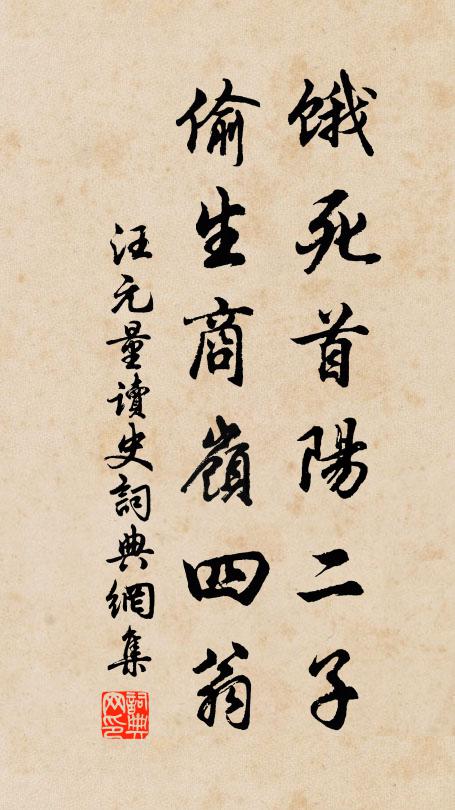 餓死首陽二子
偷生商嶺四翁
汪元量讀史詞典網集
詞典
网印